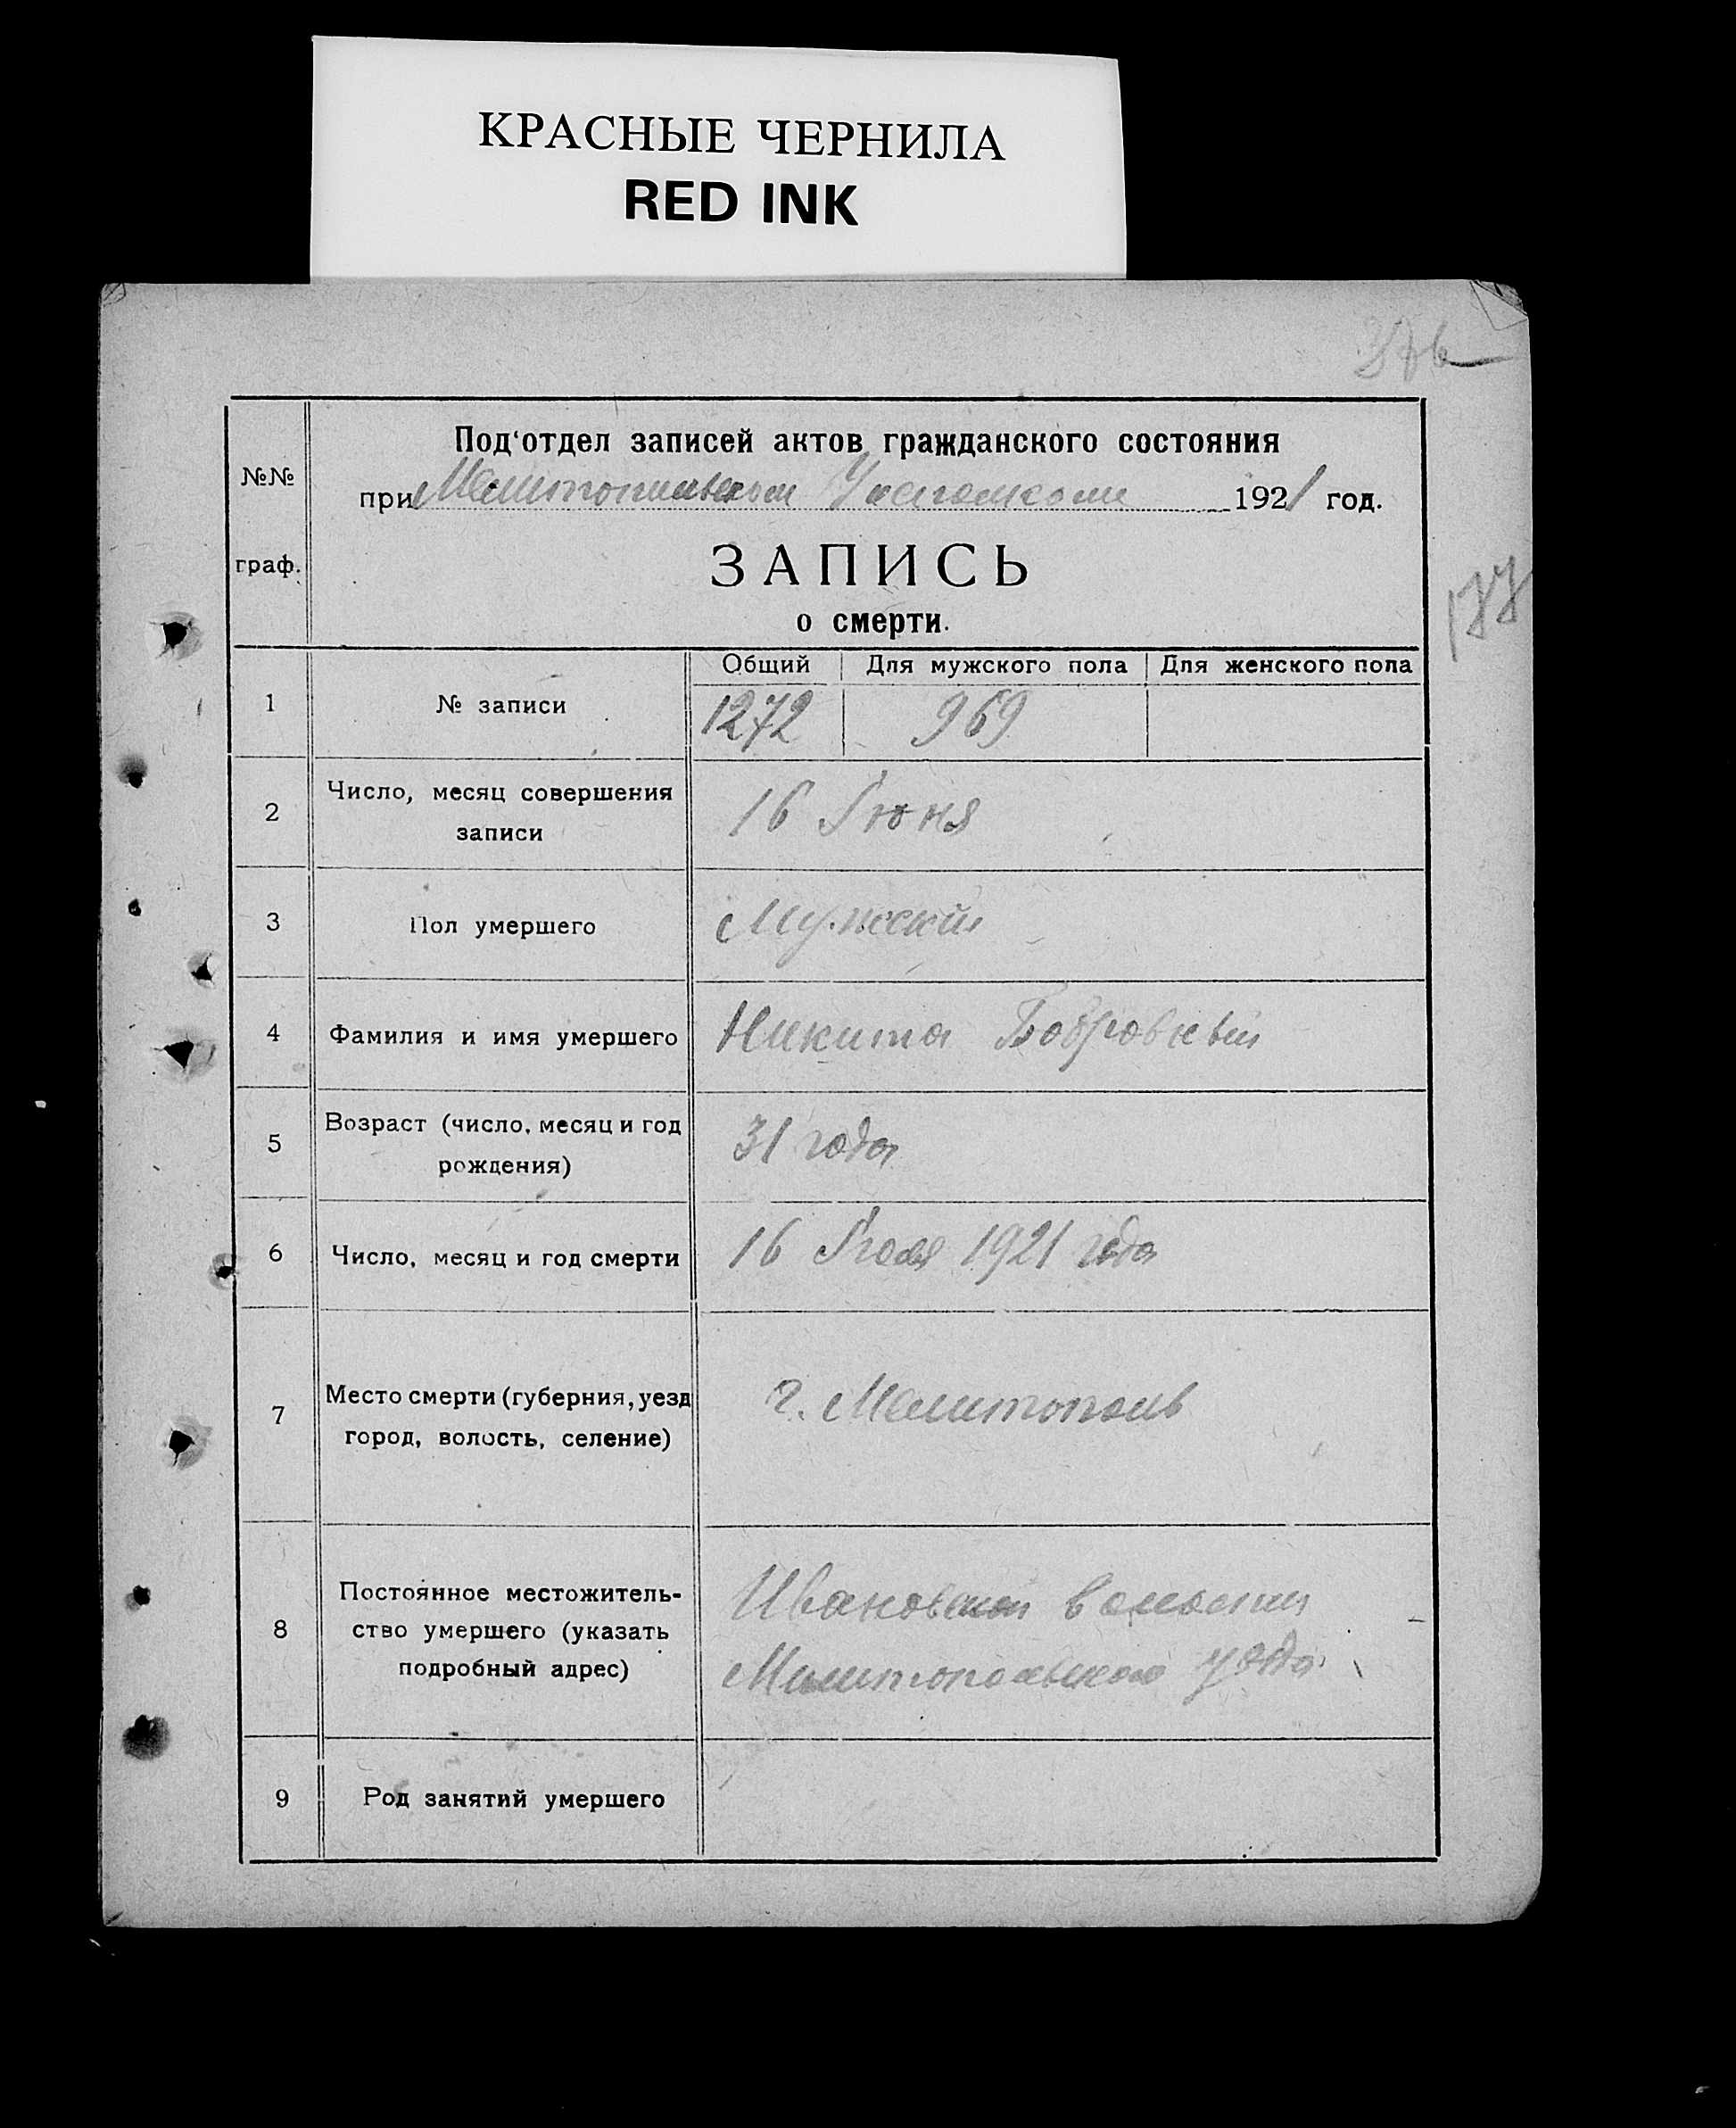 КРАСНЫЕ ЧЕРНИЛА
RED INK
№№
граф.
Под‘отдел записей актов гражданского состояния
при Мелитопольском Уисполкоме 1921 год.
ЗАПИСЬ
о смерти.
177
Общий Для мужского пола Для женского пола
1 № записи 1272 969
2 Число, месяц совершения
записи
16 Июня
3 Пол умершего Мужский
4 Фамилия и имя умершего Никита Бобровный
5 Возраст (число, месяц и год
рождения)
31 года
6 Число, месяц и год смерти 16 1921 года
7 Место смерти (губерния, уезд
город, волость, селение)
г. Мелитополь
8 Постоянное местожитель-
ство умершего (указать
подробный адрес)
Ивановской волости
Мелитопольского уезда
9 Род занятий умершего